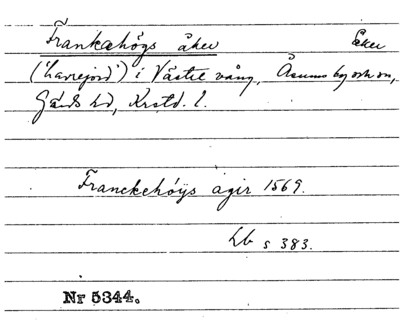 Frankahögs åker Åker
('Larrejord') i Västre vång, Åsums by och sn,
Gärds hd, Krstd. l.
Franckehöÿs agir 1569.
Lb s 383.
Nr 5344.